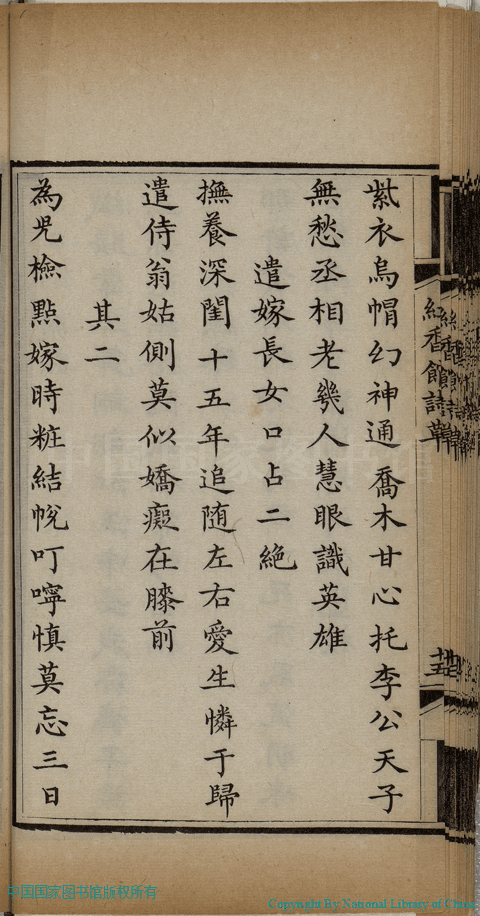 紫衣烏帽幻神通喬木甘心托李公天子
無愁丞相老幾人慧眼識英雄
遣嫁長女口占二絶
撫養深閨十五年追随左右愛生憐于歸
遣侍翁姑側莫似嬌癡在膝前
其二
為児檢點嫁時粧結帨叮嚀慎莫忘三日
紅香館詩草
中国国家图书馆
中国国家图书馆版权所有
Copyright By National Library of China